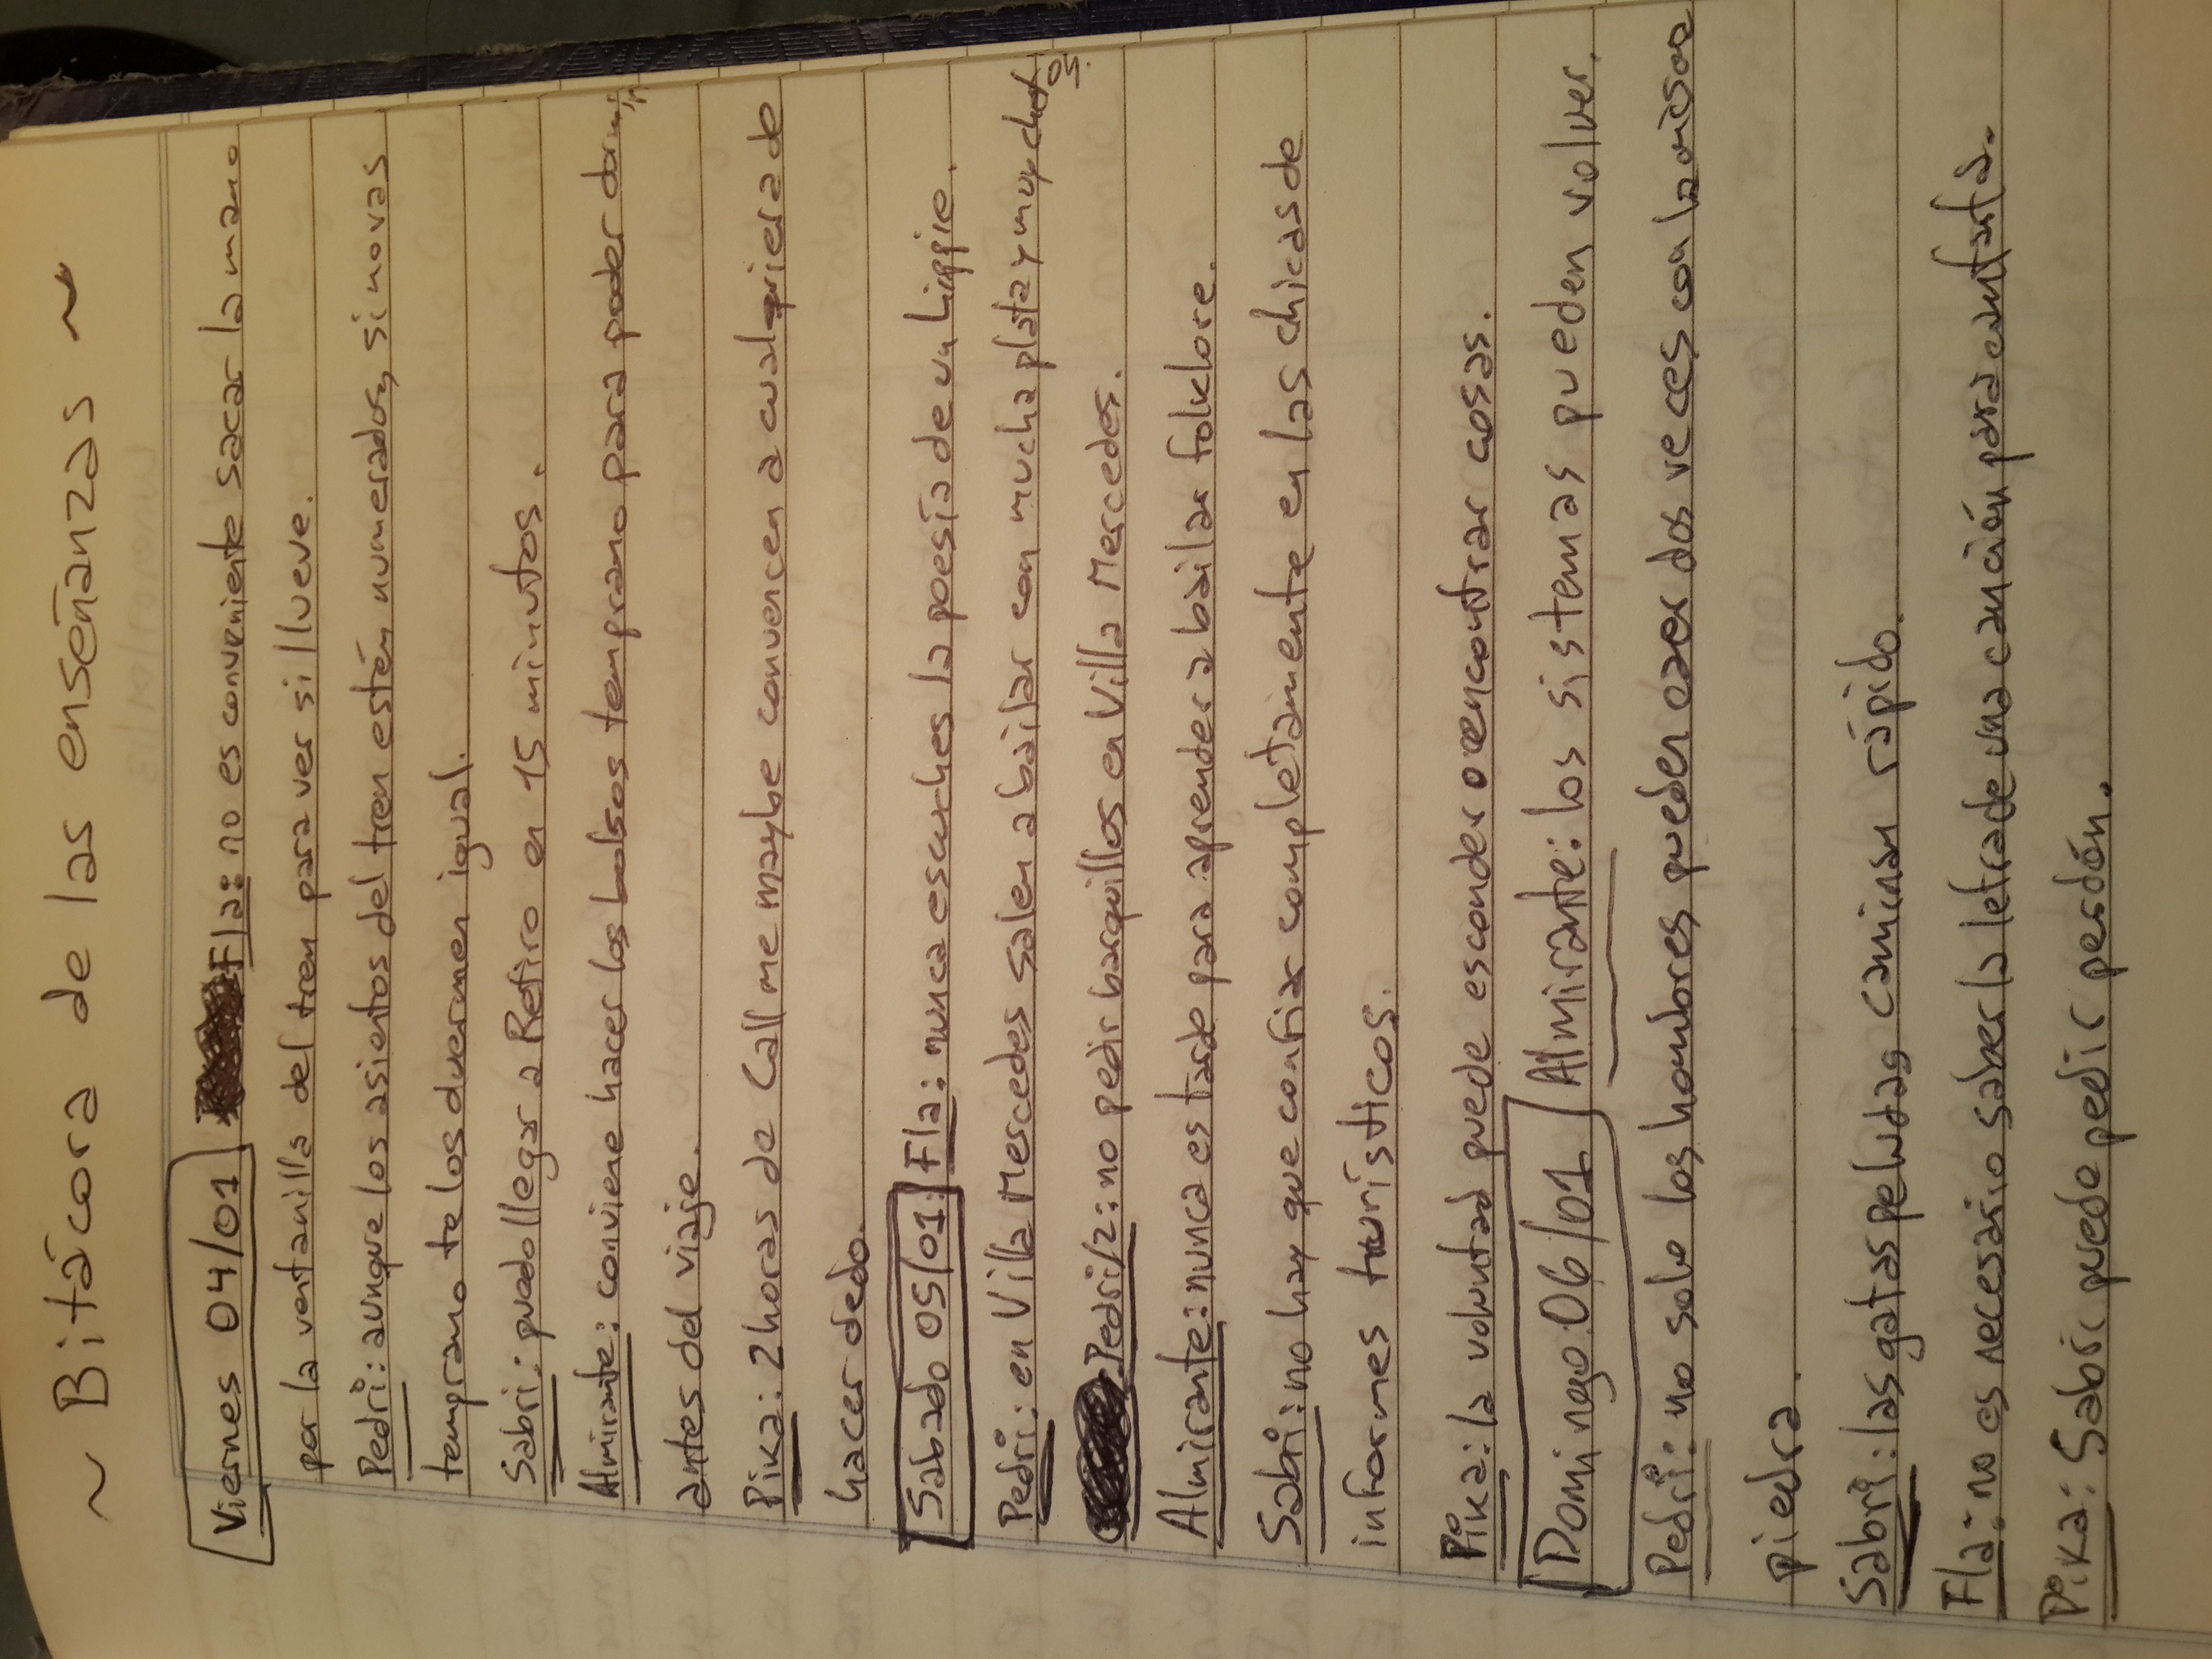 ~ Bitácora de las enseñanzas ~
Viernes 04/01 Fla: no es conveniente sacar la mano
por la ventanilla del tren para ver si llueve.
Pedri: aunque los asientos del tren estén numerados, si no vas
temprano te los duermen igual.
Sabri: puedo llegar a Retiro en 15 minutos.
Almirante: conviene hacer los bolsos temprano para poder dormir
antes del viaje.
Pika: 2 horas de Call me maybe convencen a cualquiera de
hacer dedo.
Sabado 05/01: Fla: nunca escuches la poesía de un hippie.
Pedri: en Villa Mercedes salen a bailar con mucha plata y muy
Pedri/2: no pedir barquillos en Villa Mercedes.
Almirante: nunca es tarde para aprender a bailar folklore.
Sabri: no hay que confiar completamente en las chicas de
informes turísticos.
Pika: la voluntad puede esconder o encontrar cosas.
Domingo 06/01 Almirante: los sistemas pueden volver.
Pedri: no solo los hombres pueden caer dos veces con la misma
piedra.
Sabri: las gatas peludas caminan rápido.
Fla: no es necesario saber la letra de una canción para cantarla.
Pika: Sabri puede pedir perdón.